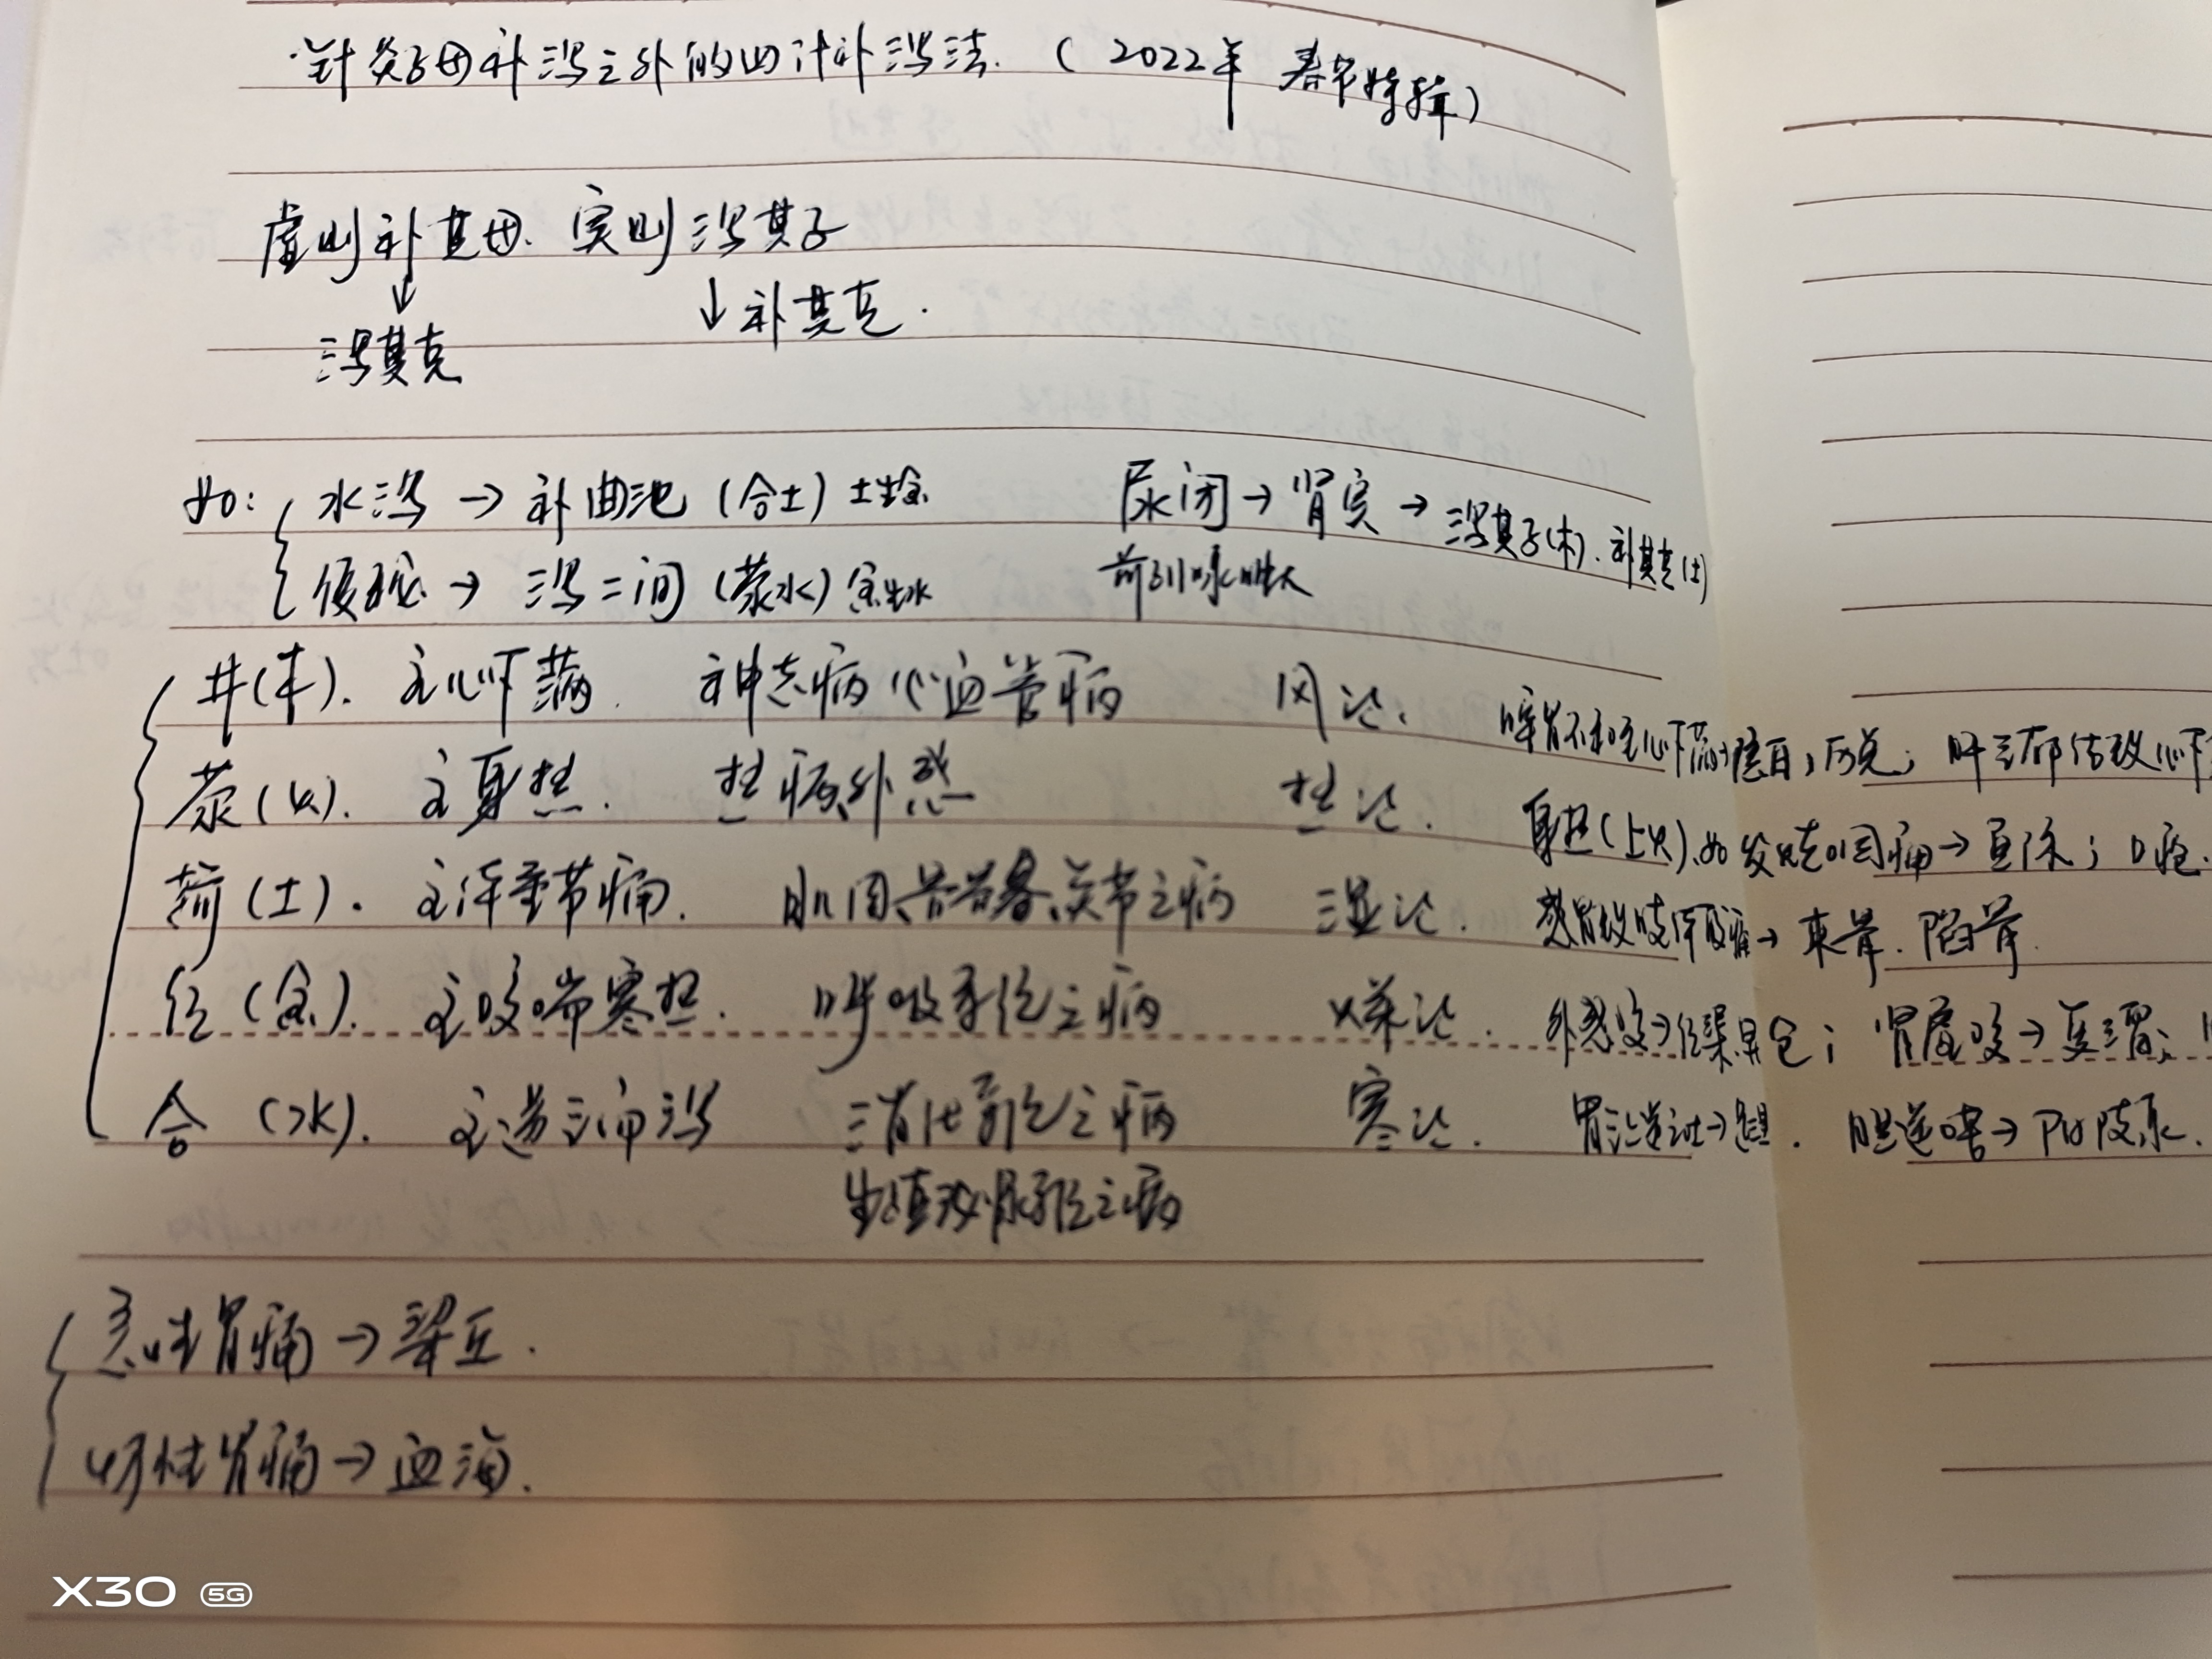 针灸子母补泻之外的四计补泻法.（2022年 春节特辑）
虚则补其母. 实则泻其子
↓ ↓补其克.
泻其克
如: 水泻→补曲池（合土）土生金 尿闭→肾实→泻其子(木). 补其克(土)
便秘→泻二间（荥水）金生水 前列腺肥大
井(木). 主心下满. 神志病 心血管病 风论. 脾胃不和主心下满→隐白,厉兑; 肝气郁结致心下
荥(火). 主身热. 热病外感 热论. 身热(上火).如发烧咽痛→鱼际; 口疮.
荥(土). 主体重节痛. 肌肉、骨骼、关节之病 湿论. 感冒致肢体酸痛→束骨. 陷谷.
经(金). 主咳喘寒热. 呼吸系统之病 燥论. 外感咳→经渠; 肾虚咳→复溜;
合(水). 主逆气而泻 消化系统之病 寒论. 胃气逆 胆逆 →阳陵泉.
生殖泌尿系统之病
急性胃痛→梁丘.
慢性胃痛→血海.
X30 5G